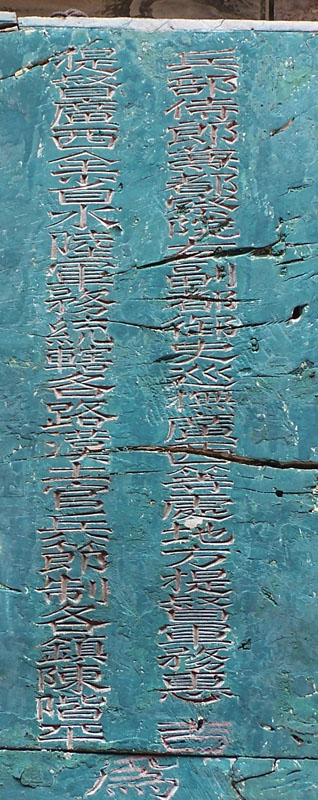 兵部侍郎兼都察院右副都御史巡撫廣西等處地方提督軍務惠吉
提督廣西全省水陸軍務統轄各路漢土官兵節制各鎮陳階平
為